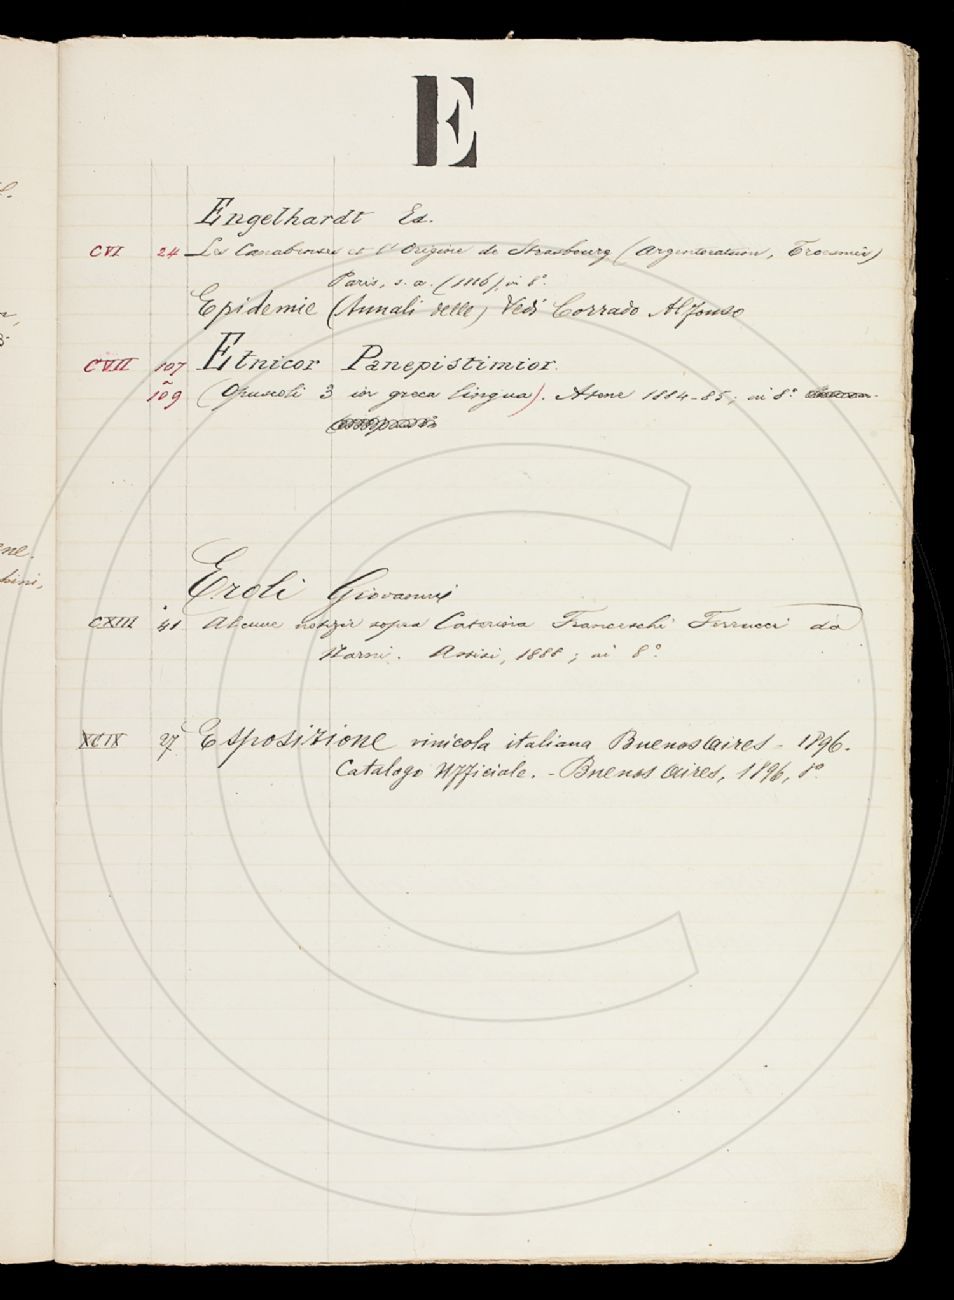 E
Engelhardt Ed.
CVI 24 Les Canabenses et l'Origine de Strasbourg (Argentoratum, Troesmis)
Paris, s. a. (1886), in 8°.
Epidemie (Annali delle) Vedi Corrado Alfonso
CVII 107 Etnicor Panepistimior.
109 (Opuscoli 3 in greca lingua). Atene 1884-85; in 8°.
Eroli Giovanni
CXIII 41 Alcune notizie sopra Caterina Franceschi Ferrucci da
Narni. Assisi, 1888; in 8°.
XCIX 27 Esposizione vinicola italiana Buenos Aires - 1896.
Catalogo Ufficiale. - Buenos Aires, 1896, 8°.